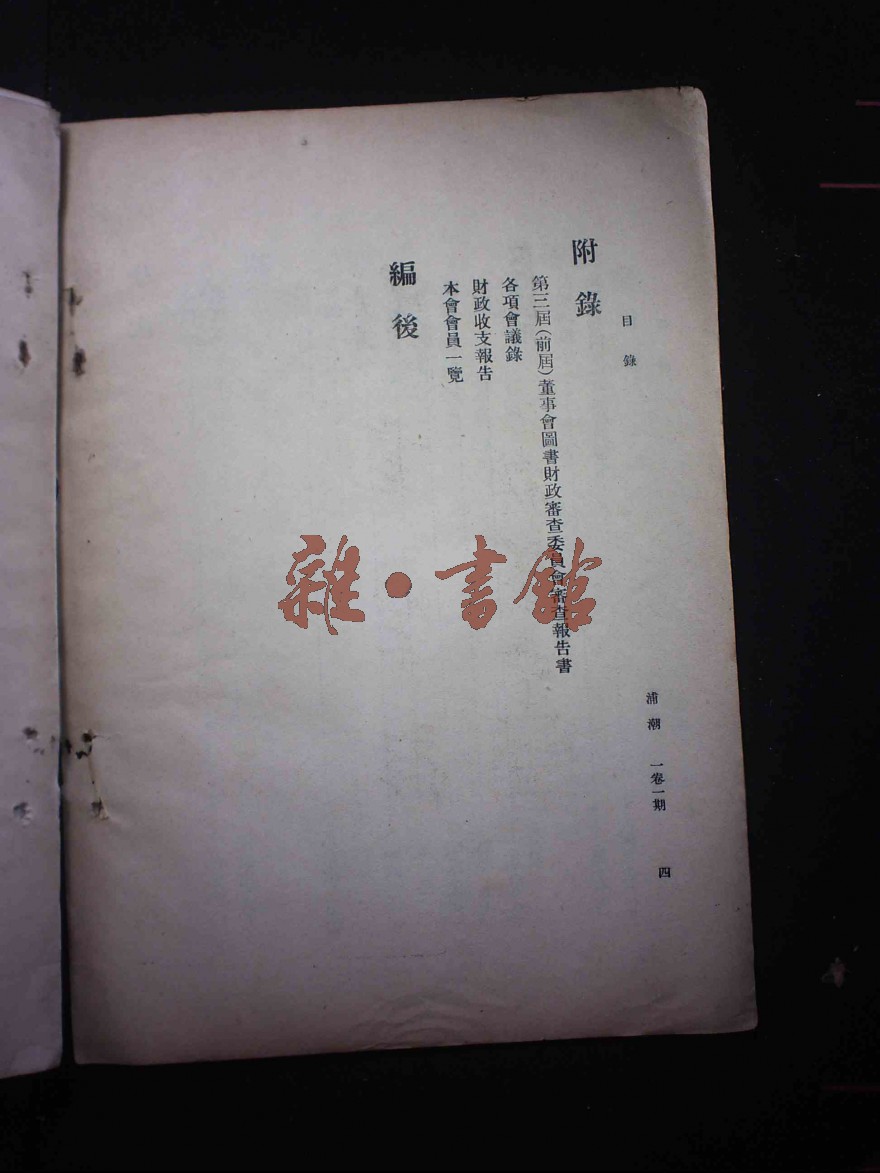 目錄
浦潮 一卷一期 四
附錄
第三屆(前屆)董事會圖書財政審查委員會審查報告書
各項會議錄
財政收支報告
本會會員一覽
編後
雜·書館